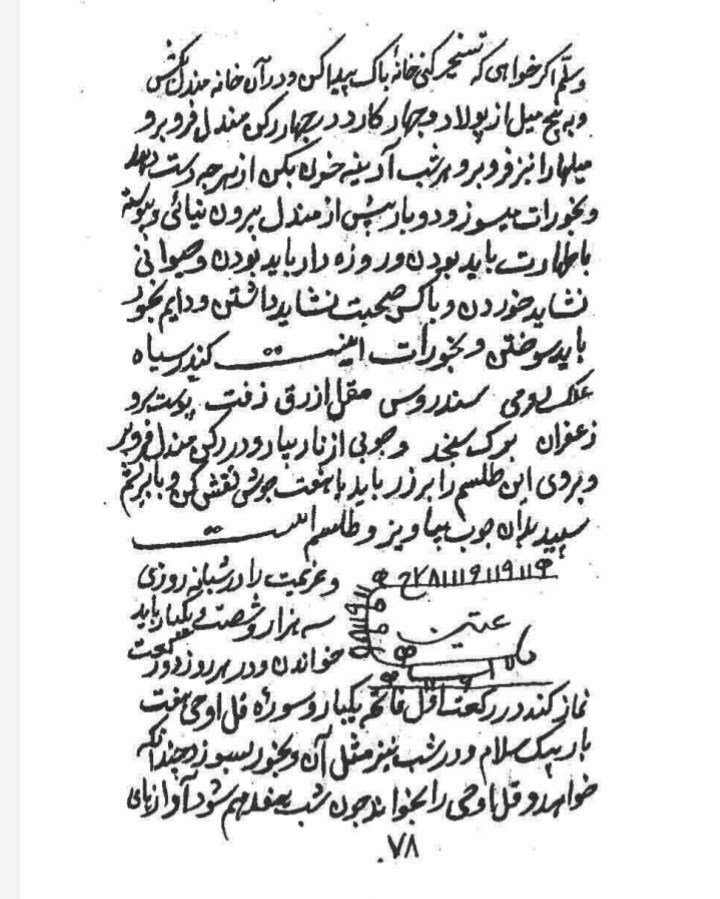 وسلّم اگر خواهی که تسخیر کنی خانهٔ پاک پیدا کن و در آن خانه مندل بکش
و به پنج میل از پولاد و چهار کارد در چهار رکن مندل فروبرو
میلها را نیز فروبرو و هرشب آدینه خون بکن از هرچه دست دهد
و بخورات میسوز و دو بار بیش از مندل بیرون نیائی و پیوسته
باطهارت باید بودن و روزه دار باید بودن و حیوانی
نشاید خوردن و باکس صحبت نشاید داشتن و دایم بخور
باید سوختن و بخورات اینست کندر سیاه
علک رومی سندروس مقل ازرق زفت پوست
زعفران برک سنجد و چوبی از نار بیار و در رکن مندل فروبر
و بروی این طلسم را بر زر باید با هفت جوش نقش کن و بابریشم
سپید بدان چوب بیاویز و طلسم است
۸۱۱۱۹۱۱۹۱۱
و عزیمت را در شبانه روزی
سه هزار و شصت و یکبار باید
خواندن و در هر روز دو رکعت
نماز کند در رکعت اول فاتحه یکبار و سوره قل اوحی هفت
بار بیک سلام و در شب نیز مثل آن و بخور بسوزد چندانکه
خواهد و قل اوحی را بخواند چون شب هفدهم شود آوازهای
۷۸